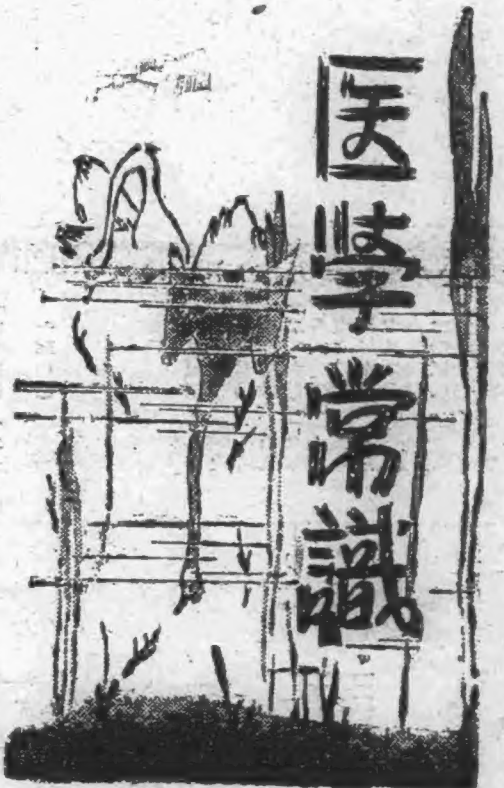 医学常識